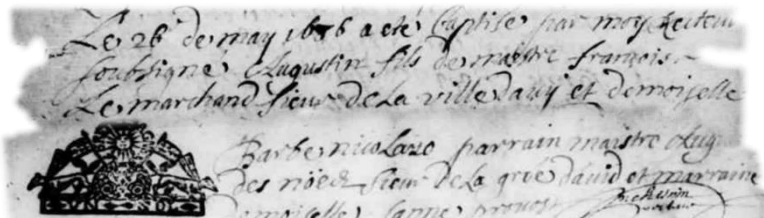 Le 26 de may 1676 a eté Baptise par moy Recteur
soubsigne Augustin fils de maistre françois
Le marchand sieur de La ville davy et demoiselle
Barbe nicolazo parrain maistre Aug
des nöes sieur de La greé david et marraine
demoiselle anne provost